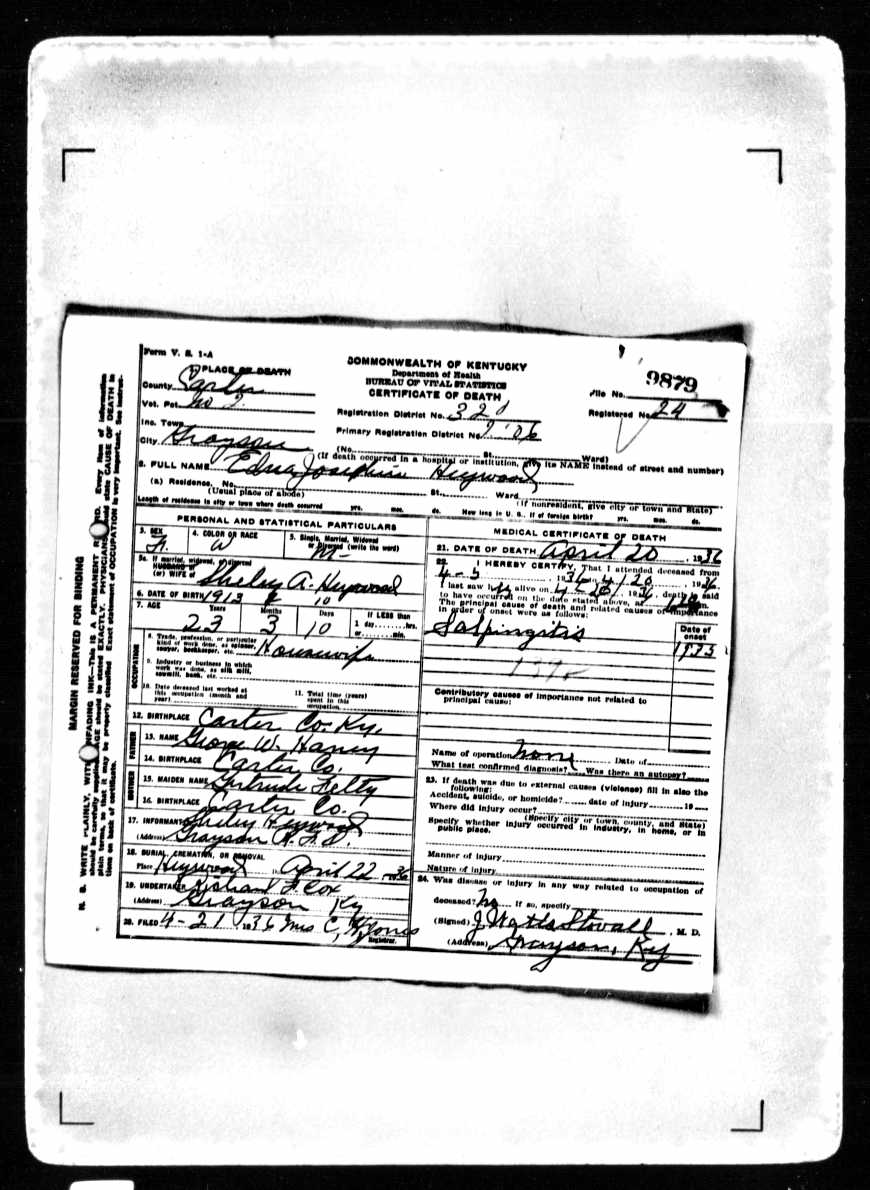 Form V. S. 1-A
COMMONWEALTH OF KENTUCKY
Department of Health
BUREAU OF VITAL STATISTICS
CERTIFICATE OF DEATH
9879
File No.
Registered No. 24
1 PLACE OF DEATH
County Carter
Vot. Pct. No 2.
Inc. Town
City Grayson
Registration District No. 320
Primary Registration District No.
(No. St. Ward)
(If death occurred in a hospital or institution, give its NAME instead of street and number)
2. FULL NAME Edna Josephine Heywood
(a) Residence. No. St., Ward
(Usual place of abode) (If nonresident, give city or town and State)
Length of residence in city or town where death occurred yrs. mos. ds. How long in U. S., if of foreign birth? yrs. mos. ds.
PERSONAL AND STATISTICAL PARTICULARS
3. SEX F. 4. COLOR OR RACE W 5. Single, Married, Widowed or Divorced (write the word) M-
5a. If married, widowed, or divorced
HUSBAND of
(or) WIFE of Shelby A. Heywood
6. DATE OF BIRTH 1913 10
7. AGE Years Months Days If LESS than
23 3 10 1 day hrs. or min.
OCCUPATION
8. Trade, profession, or particular kind of work done, as spinner, sawyer, bookkeeper, etc. Housewife
9. Industry or business in which work was done, as silk mill, sawmill, bank, etc.
10. Date deceased last worked at this occupation (month and year) 11. Total time (years) spent in this occupation
12. BIRTHPLACE Carter Co. Ky.
FATHER
13. NAME George W. Haney
14. BIRTHPLACE Carter Co.
MOTHER
15. MAIDEN NAME Gertrude Felty
16. BIRTHPLACE Carter Co.
17. INFORMANT Shelby Heywood
(Address) Grayson R.F.D.
18. BURIAL, CREMATION, OR REMOVAL
Place Heywood D April 22 1936
19. UNDERTAKER F. Cox
(Address) Grayson Ky
20. FILED 4-21 1936 Mrs C, H Jones
Registrar.
MEDICAL CERTIFICATE OF DEATH
21. DATE OF DEATH April 20, 1936
22. I HEREBY CERTIFY, That I attended deceased from
4-5, 1936 to 4/20, 1936.
I last saw h alive on 4-20, 1936, death is said
to have occurred on the date stated above, at m.
The principal cause of death and related causes of importance
in order of onset were as follows:
Salpingitis
Date of onset
1935
Contributory causes of importance not related to
principal cause:
Name of operation None Date of
What test confirmed diagnosis? Was there an autopsy?
23. If death was due to external causes (violence) fill in also the
following:
Accident, suicide, or homicide? date of injury 19
Where did injury occur?
(Specify city or town, county, and State)
Specify whether injury occurred in industry, in home, or in
public place.
Manner of injury
Nature of injury
24. Was disease or injury in any way related to occupation of
deceased? No If so, specify
(Signed) J Watts Stovall, M. D.
(Address) Grayson, Ky
MARGIN RESERVED FOR BINDING
N. B. WRITE PLAINLY, WITH UNFADING INK—THIS IS A PERMANENT RECORD. Every item of information
should be carefully supplied. AGE should be stated EXACTLY. PHYSICIANS should state CAUSE OF DEATH in
plain terms, so that it may be properly classified. Exact statement of OCCUPATION is very important. See instruc-
tions on back of certificate.